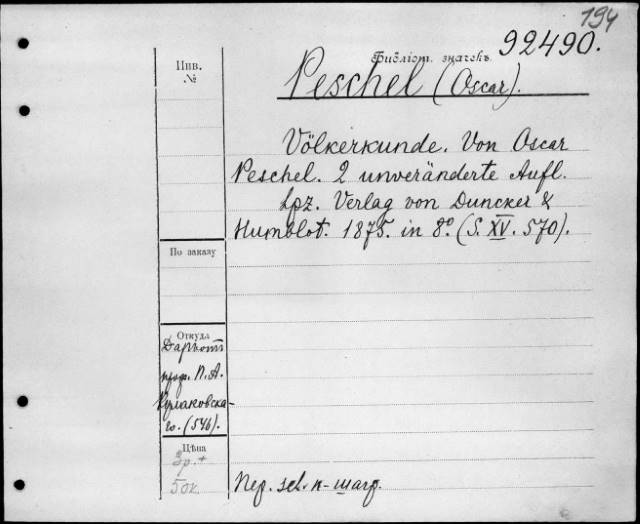 194
92490.
Библіот. значекъ
Инв.
№
Peschel (Oscar).
Völkerkunde. Von Oscar
Peschel. 2 unveränderte Aufl.
Lpz. Verlag von Duncker &
Humblot. 1875. in 8°. (S. XV. 570).
По заказу
Откуда
Даръ отъ
проф. П. А.
Кулаковска-
го. (546).
Цѣна
3 р. +
50 к.
Пер.